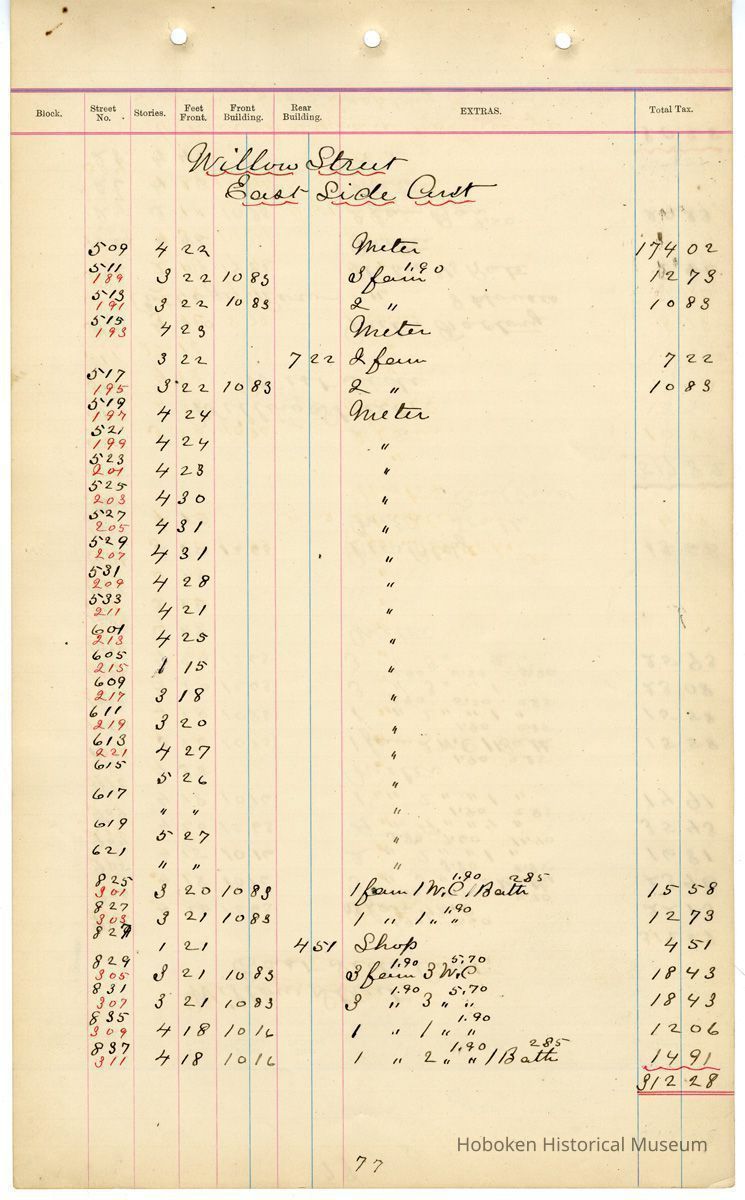 Block. Street No. Stories. Feet Front. Front Building. Rear Building. EXTRAS. Total Tax.
Willow Street
East Side Cont
509 4 22 Meter 174 02
511 189 3 22 10 83 3 fam 1.90 12 73
513 191 3 22 10 83 2 " 10 83
515 193 4 23 Meter
3 22 7 22 2 fam 7 22
517 195 3 22 10 83 2 " 10 83
519 197 4 24 Meter
521 199 4 24 "
523 201 4 23 "
525 203 4 30 "
527 205 4 31 "
529 207 4 31 "
531 209 4 28 "
533 211 4 21 "
601 213 4 25 "
605 215 1 15 "
609 217 3 18 "
611 219 3 20 "
613 221 4 27 "
615 5 26 "
617 " " "
619 5 27 "
621 " " "
825 301 3 20 10 83 1 fam 1 W.C 1.90 1 Bath 2.85 15 58
827 303 3 21 10 83 1 " 1 " " 1.90 12 73
829 1 21 4 51 Shop 4 51
829 305 3 21 10 83 3 fam 1.90 3 W.C 5.70 18 43
831 307 3 21 10 83 3 " 1.90 3 " " 5.70 18 43
835 309 4 18 10 16 1 " 1 " " 1.90 12 06
837 311 4 18 10 16 1 " 2 " " 1.90 1 Bath 2.85 14 91
312 28
Hoboken Historical Museum
77